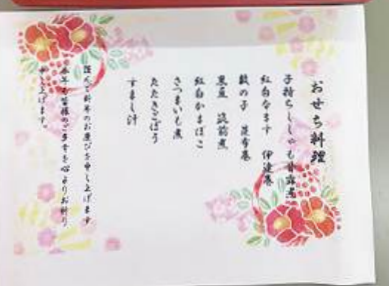 おせち料理
子持ちししゃも甘露煮
紅白なます 伊達巻
数の子 昆布巻
黒豆 筑前煮
紅白かまぼこ
さつまいも煮
たたきごぼう
すまし汁
謹んで新年のお慶びを申し上げます
本年も皆様のご多幸を心よりお祈り
申し上げます。